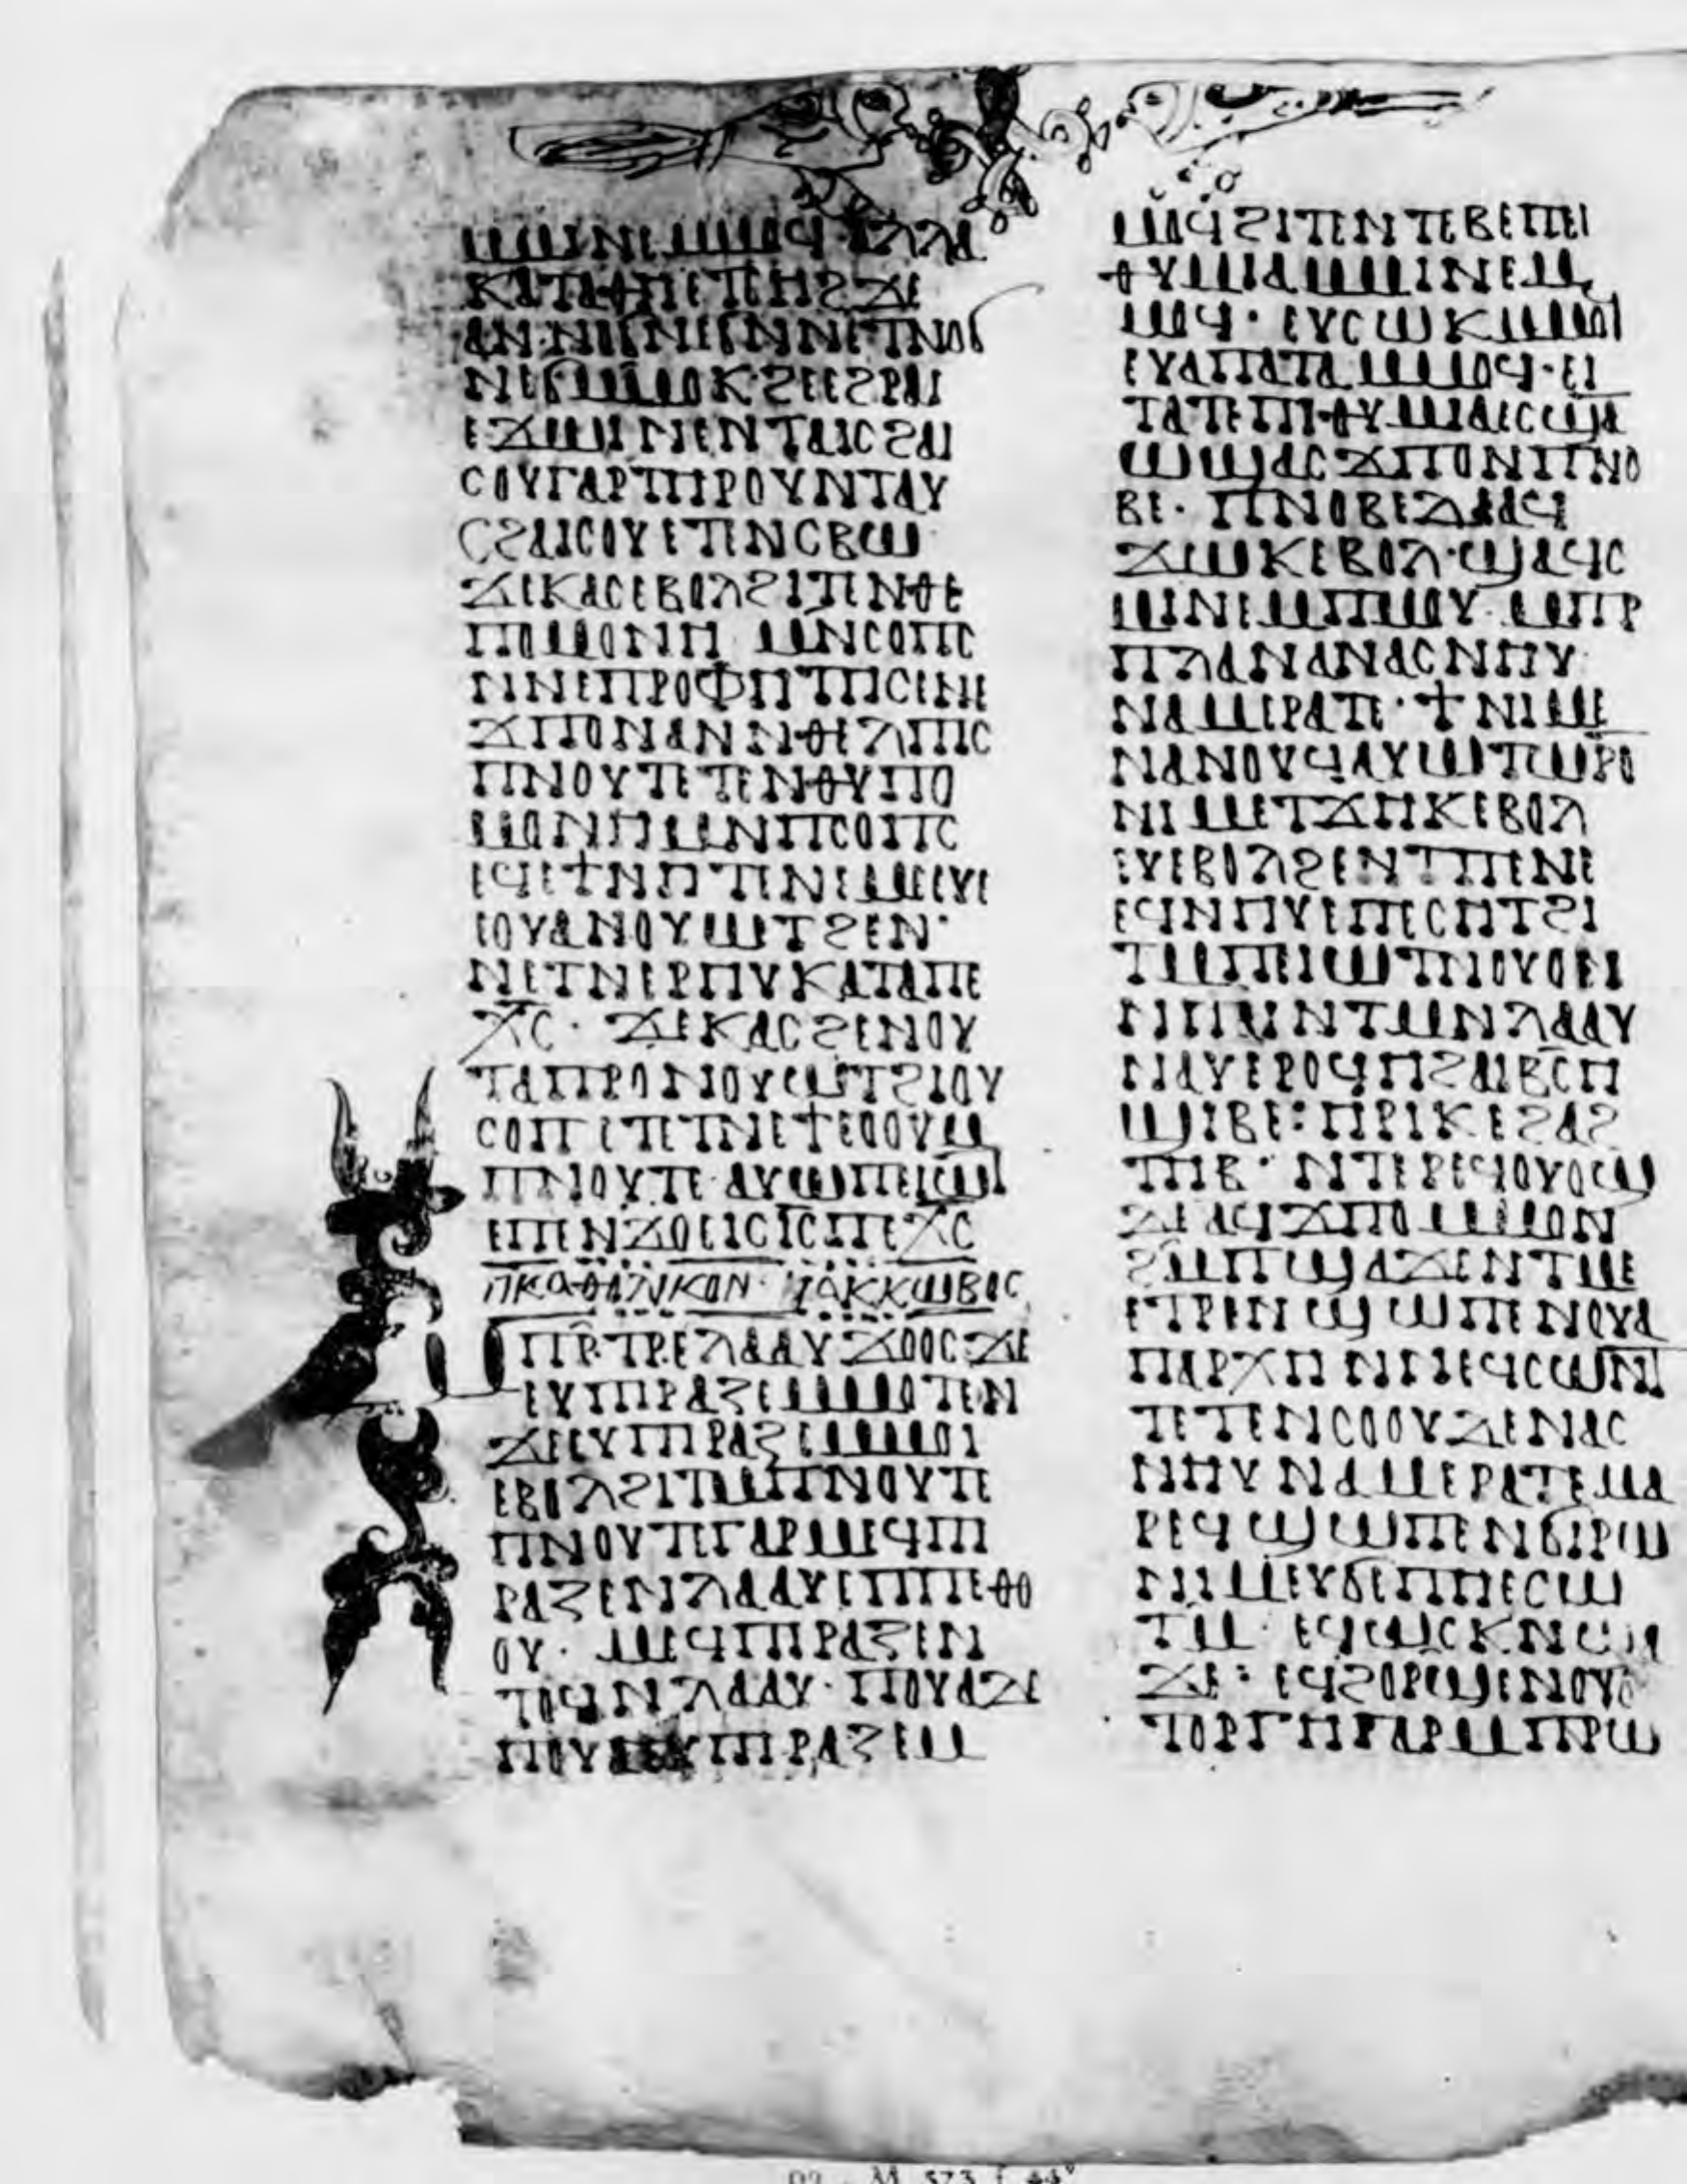 ⲙⲙⲓⲛⲉⲙⲙⲟϥ ⲁⲗⲗⲁ
ⲕⲁⲧⲁⲑⲏ ⲉⲧⲉⲏϩϫⲉ
ⲁⲛ ⲛⲛϭⲛⲉϭⲛⲛⲉⲧⲛⲟϭ
ⲛⲉϭⲙⲙⲟⲕϩⲉⲉϩⲣⲁⲓ
ⲉϫⲱⲓ ⲛⲉⲛⲧⲁⲓⲥϩⲁⲓ
ⲥⲟⲩⲅⲁⲣⲧⲏⲣⲟⲩⲛⲧⲁⲩ
ⲥϩⲁⲓⲥⲟⲩⲉⲧⲉⲛⲥⲃⲱ
ϫⲉⲕⲁⲥⲉⲃⲟⲗϩⲓⲧⲉⲛⲑⲉ
ⲡⲟⲙⲟⲛⲏ ⲙⲛⲥⲟⲡⲥ
ⲛⲛⲉⲡⲣⲟⲫⲏⲧⲏⲥⲉⲛⲉ
ϫⲡⲟⲛⲁⲛⲛⲑⲉⲗⲡⲓⲥ
ⲡⲛⲟⲩⲧⲉⲧⲉⲛⲑⲩⲡⲟ
ⲙⲟⲛⲏⲙⲛⲡⲥⲟⲡⲥ
ⲉϥⲉϯⲛⲏⲧⲉⲛⲉⲙⲉⲉⲩⲉ
ⲉⲟⲩⲁⲛⲟⲩⲱⲧϩⲉⲛ·
ⲛⲉⲧⲛⲉⲣⲏⲩⲕⲁⲧⲁⲡⲉ
ⲭ̅ⲥ̅· ϫⲉⲕⲁⲥϩⲉⲛⲟⲩ
ⲧⲁⲡⲣⲟⲛⲟⲩⲱⲧϩⲓⲟⲩ
ⲥⲟⲡ ⲉⲧⲉⲧⲛⲉϯⲉⲟⲟⲩⲙ
ⲡⲛⲟⲩⲧⲉ·ⲁⲩⲱⲡⲉⲓⲱⲧ
ⲉⲡⲉⲛϫⲟⲉⲓⲥⲓ̅ⲥ̅ⲡⲉⲭ̅ⲥ̅
ⲡⲕⲁⲑⲟⲗⲓⲕⲟⲛ· ⲓⲁⲕⲕⲱⲃⲟⲥ
ⲙⲡⲣⲧⲣⲉⲗⲁⲁⲩϫⲟⲟⲥϫⲉ
ⲉⲩⲡⲓⲣⲁⲍⲉⲙⲙⲟⲧⲉⲛ
ϫⲉⲉⲩⲡⲓⲣⲁⲍⲉⲙⲙⲟⲓ
ⲉⲃⲟⲗϩⲓⲧⲙⲡⲛⲟⲩⲧⲉ
ⲡⲛⲟⲩⲧⲉⲅⲁⲣⲙⲉϥⲡⲓ
ⲣⲁⲍⲉⲛⲗⲁⲁⲩⲉⲡⲡⲉⲑⲟ
ⲟⲩ· ⲙⲉϥⲡⲓⲣⲁⲍⲉⲛ
ⲧⲟϥⲛⲗⲁⲁⲩ· ⲡⲟⲩⲁϫⲉ
ⲡⲟⲩⲁ ⲉⲩⲡⲓⲣⲁⲍⲉⲙ
ⲙⲟϥϩⲓⲧⲉⲛⲧⲉⲃⲉⲡⲉⲓ
ⲑⲩⲙⲓⲁⲙⲙⲓⲛⲉⲙ
ⲙⲟϥ· ⲉⲩⲥⲱⲕⲙⲙⲟϥ
ⲉⲩⲁⲡⲁⲧⲁⲙⲙⲟϥ·ⲉⲓ
ⲧⲁⲧⲉⲡⲓⲑⲩⲙⲓⲁⲉⲥϣⲁ
ⲱϣⲁⲥϫⲡⲟⲛⲡⲛⲟ
ⲃⲉ· ⲡⲛⲟⲃⲉⲇⲁⲁϥ
ϫⲱⲕⲉⲃⲟⲗ·ϣⲁϥϫ
ⲙⲓⲛⲉⲙⲡⲙⲟⲩ· ⲙⲡⲣ
ⲡⲗⲁⲛⲁⲛⲁⲥⲛⲏⲩ
ⲛⲁⲙⲉⲣⲁⲧⲉ·ϯⲛⲓⲙⲉ
ⲛⲁⲛⲟⲩϥⲁⲩⲱⲧⲱⲣⲟ
ⲛⲓⲙⲉⲧϫⲏⲕⲉⲃⲟⲗ
ⲉⲩⲉⲃⲟⲗϩⲉⲛⲧⲡⲉⲛⲉ
ⲉϥⲛⲏⲩⲉⲡⲉⲥⲏⲧϩⲓ
ⲧⲙⲡⲉⲓⲱⲧⲛⲟⲩⲟⲉⲓ
ⲛⲡⲏⲛⲧⲙⲛⲗⲁⲁⲩ
ⲛⲁⲩⲉⲣⲟϥⲏϩⲁⲓⲃⲥⲏ
ϣⲓⲃⲉ: ⲏⲣⲓⲕⲉϩⲁϩ
ⲧⲏⲃ· ⲛⲧⲉⲣⲉϥⲟⲩⲟϣ
ϫⲉⲁϥϫⲡⲟⲙⲙⲟⲛ
ϩⲙⲡϣⲁϫⲉⲛⲧⲙⲉ
ⲉⲧⲣⲉⲛϣⲱⲡⲉⲛⲟⲩⲁ
ⲡⲁⲣⲭⲏⲛⲛⲉϥⲥⲱⲛⲧ
ⲧⲉⲧⲉⲛⲥⲟⲟⲩϫⲉⲛⲁⲥ
ⲛⲏⲩⲛⲁⲙⲉⲣⲁⲧⲉⲙⲁ
ⲣⲉϥϣⲱⲡⲉⲛϭⲓⲣⲱ
ⲛⲓⲙⲉⲩϭⲉⲡⲏⲉⲥⲱ
ⲧⲙ· ⲉϥⲱⲥⲕⲛϣⲁ
ϫⲉ: ⲉϥϩⲟⲣϣⲉⲛⲟⲩⲟ
ⲧⲟⲣⲅⲏⲅⲁⲣⲙⲡⲣⲱ